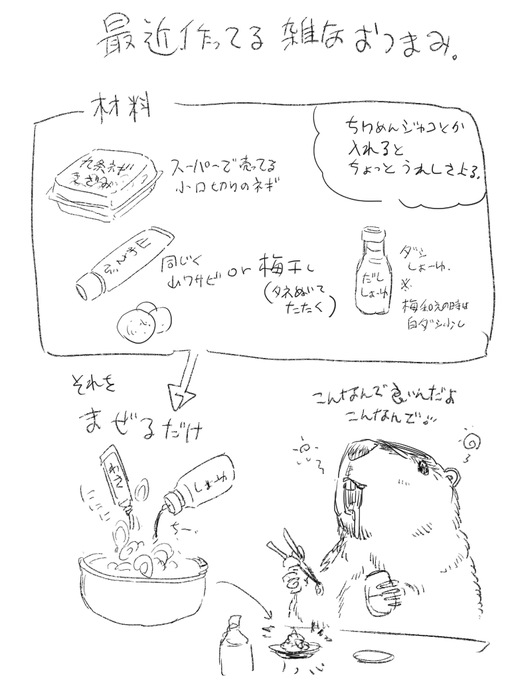 最近作ってる 雑なおつまみ。
材料
ちりめんジャコとか
入れると
ちょっとうれしさよる。
九条ネギ
きざみ
スーパーで売ってる
小口切りのネギ
同じく
山ワサビ
or 梅干し
(タネぬいて
たたく)
だし
しょーゆ
ダシ
しょーゆ.
※
梅和えの時は
白ダシ少し
それを
まぜるだけ
わさ
しょーゆ
こんなんで良いんだよ
こんなんで。